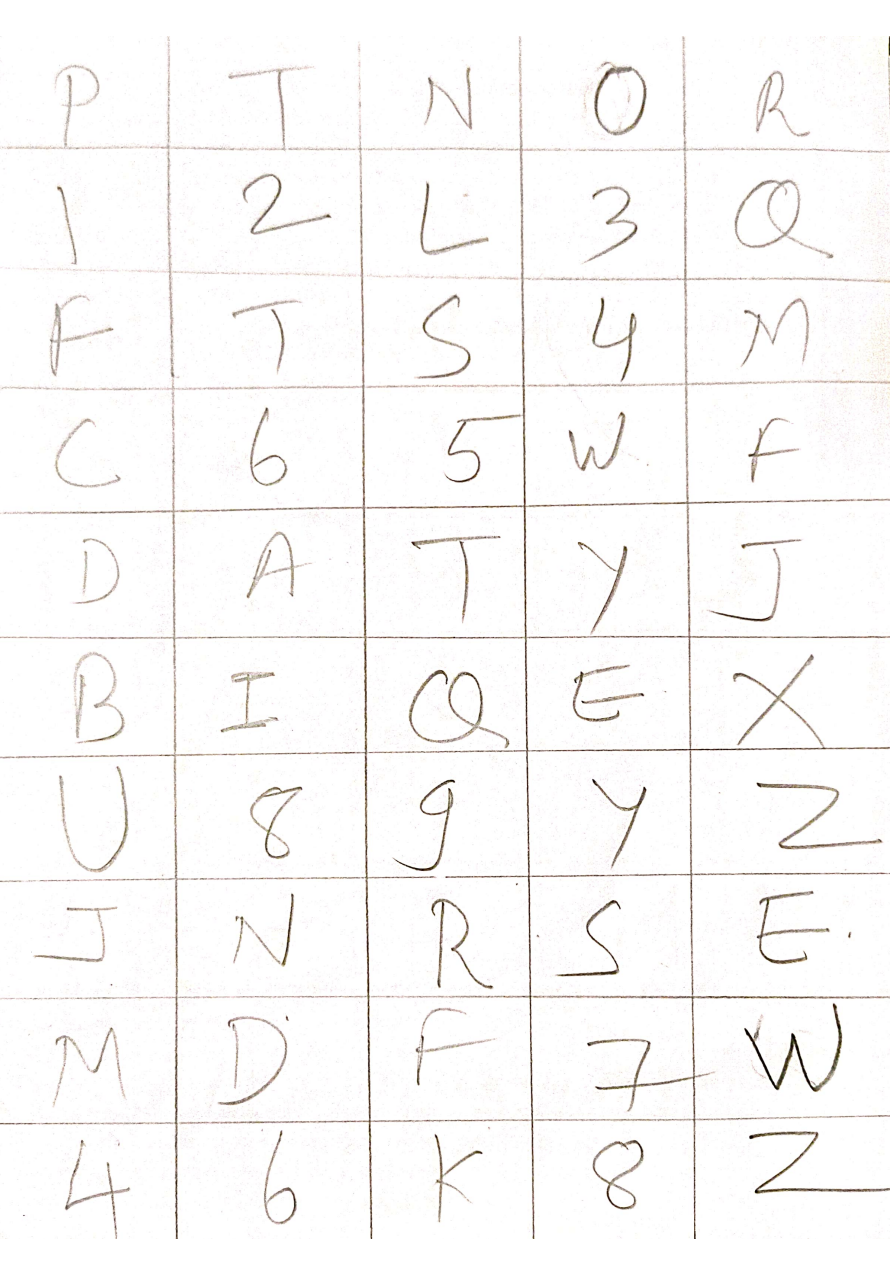 P T N O R
1 2 L 3 Q
F T S 4 M
C 6 5 W F
D A T Y J
B I Q E X
U 8 9 Y Z
J N R S E.
M D F 7 W
4 6 K 8 Z